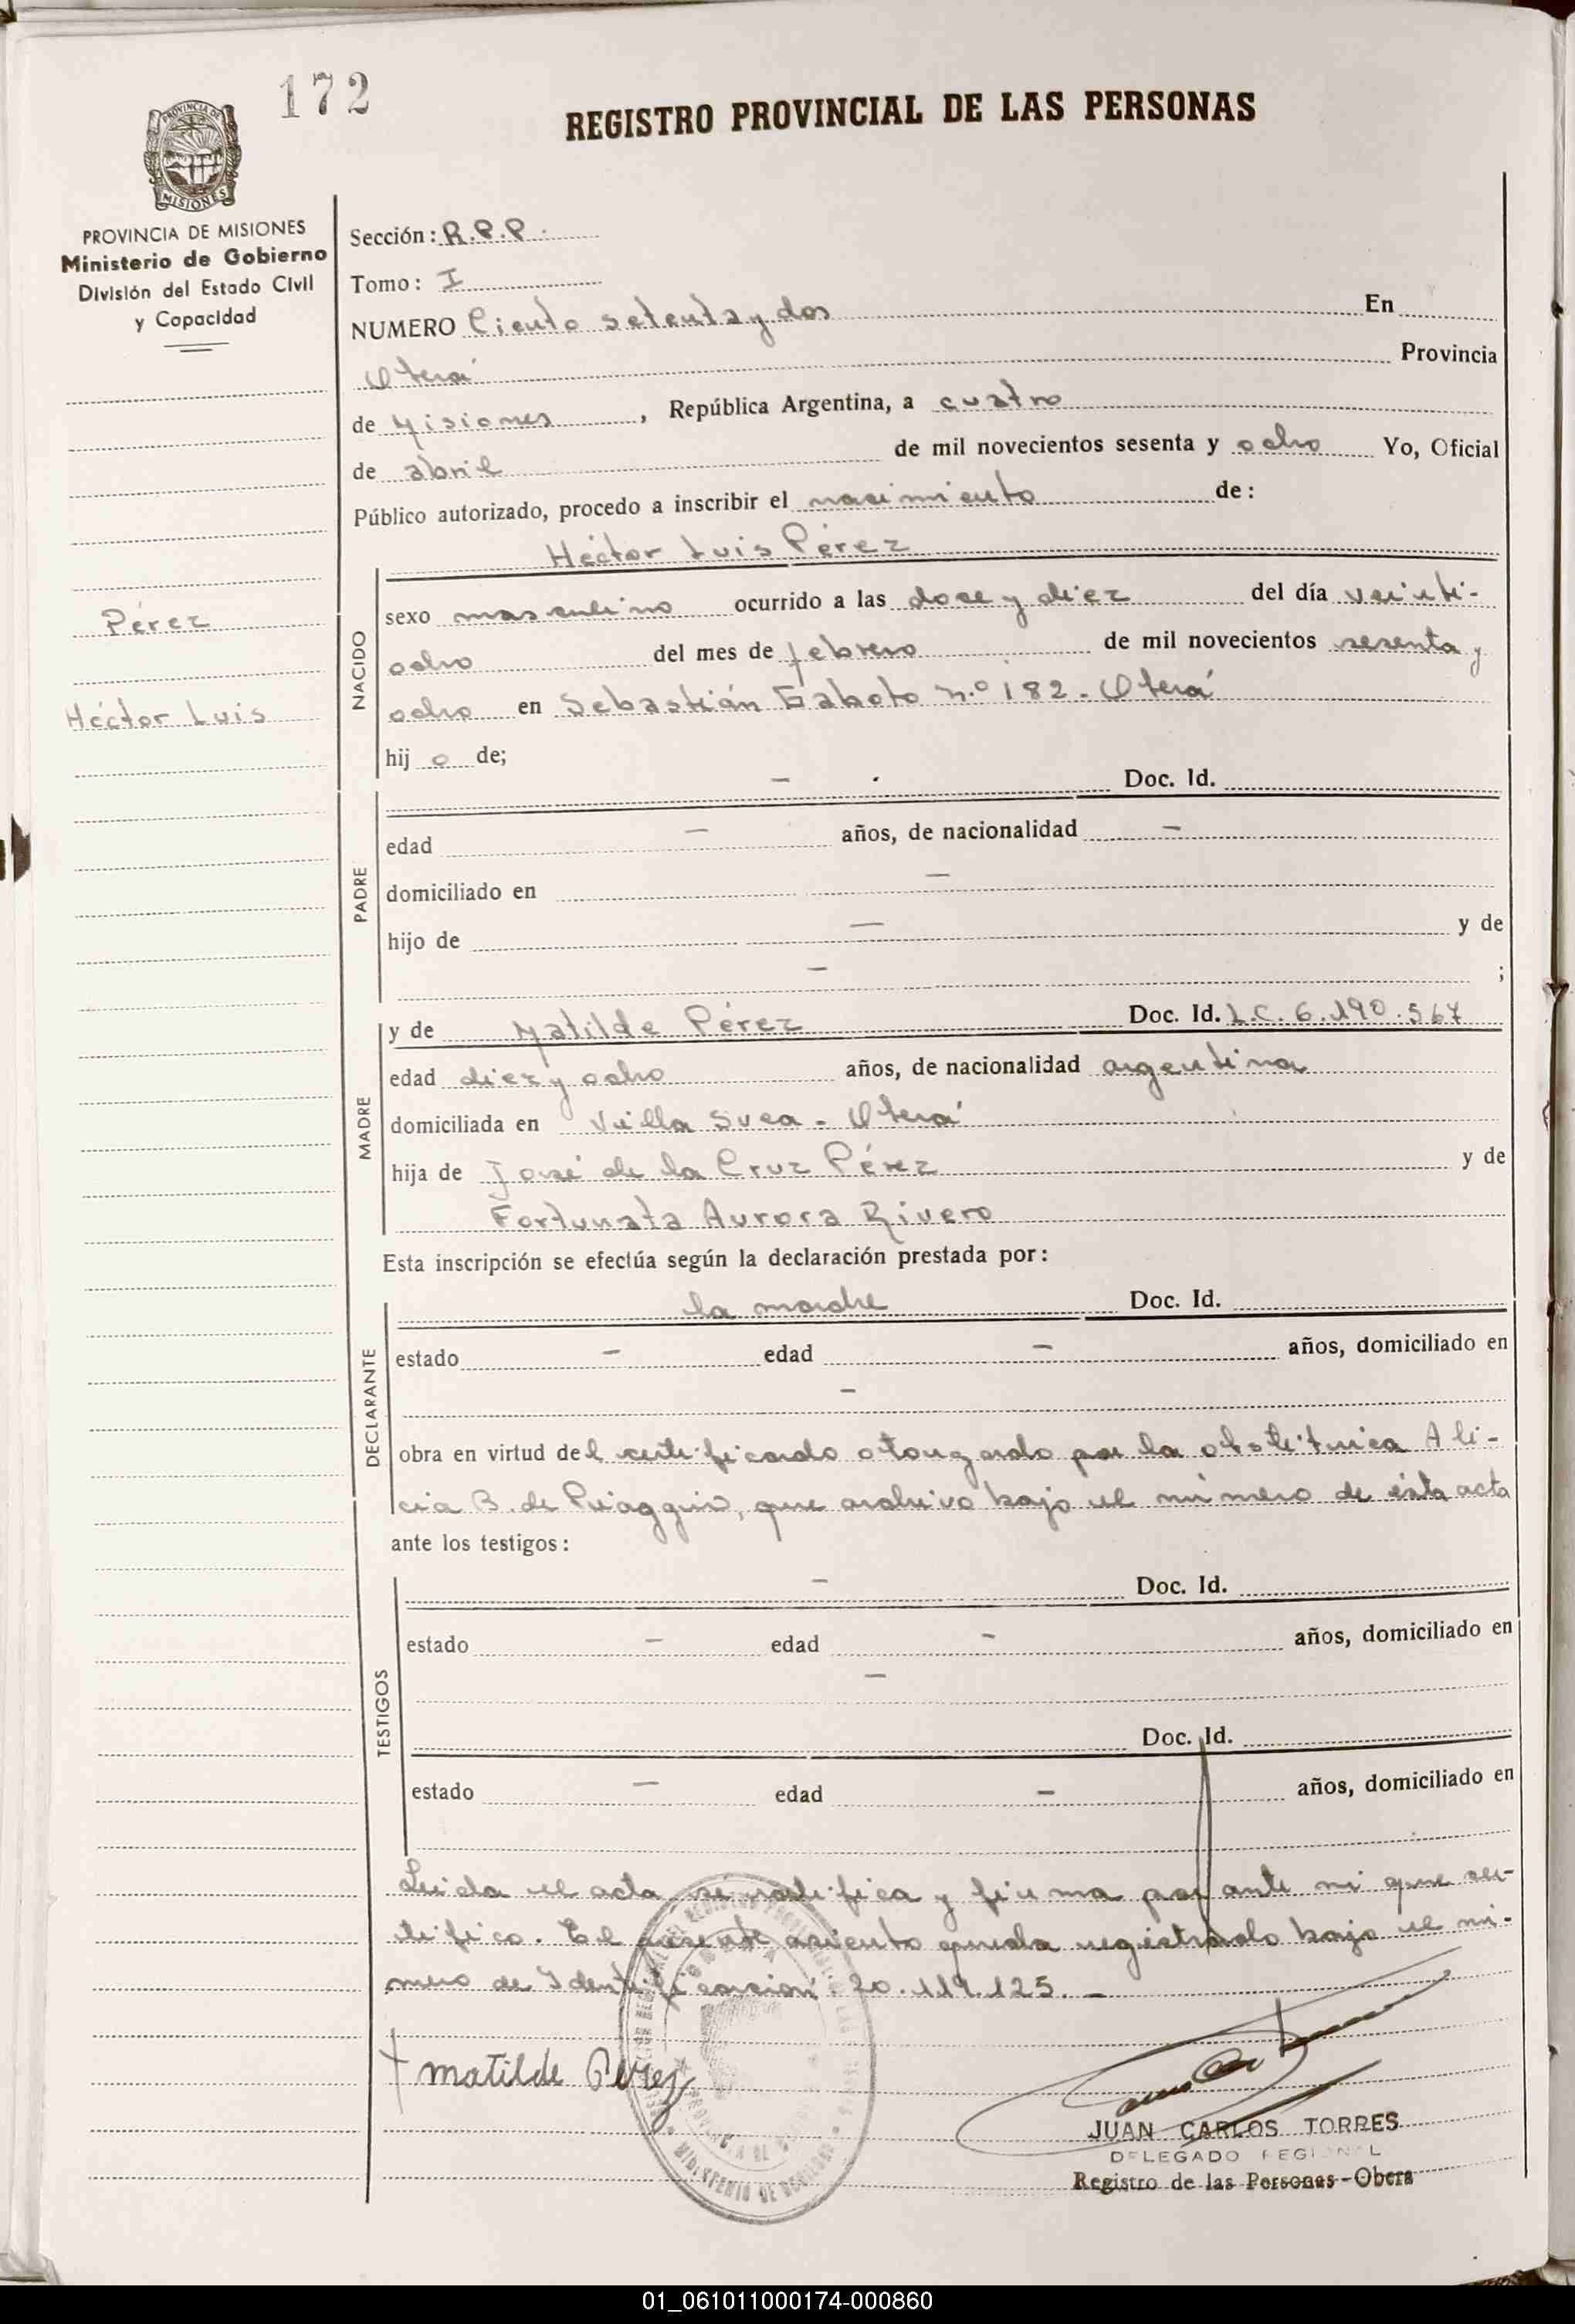 172
REGISTRO PROVINCIAL DE LAS PERSONAS
PROVINCIA DE MISIONES
Ministerio de Gobierno
División del Estado Civil
y Capacidad
Sección: R.P.P.
Tomo: I
NUMERO Ciento setenta y dos En
Oberá Provincia
de Misiones, República Argentina, a cuatro
de abril de mil novecientos sesenta y ocho Yo, Oficial
Público autorizado, procedo a inscribir el nacimiento de:
Héctor Luis Pérez
Pérez
Héctor Luis
NACIDO
sexo masculino ocurrido a las doce y diez del día veinti-
ocho del mes de febrero de mil novecientos sesenta y
ocho en Sebastián Gaboto n.º 182 - Oberá
hij o de;
PADRE
— Doc. Id.
edad — años, de nacionalidad —
domiciliado en —
hijo de — y de
— ;
MADRE
y de Matilde Pérez Doc. Id. L.C. 6.190.567
edad diez y ocho años, de nacionalidad argentina
domiciliada en Villa Svea - Oberá
hija de José de la Cruz Pérez y de
Fortunata Aurora Rivero
Esta inscripción se efectúa según la declaración prestada por:
DECLARANTE
la madre Doc. Id.
estado — edad — años, domiciliado en
—
obra en virtud del certificado otorgado por la obstétrica Ali-
cia B. de que archivo bajo el número de ésta acta
ante los testigos:
TESTIGOS
— Doc. Id.
estado — edad — años, domiciliado en
—
Doc. Id.
estado — edad — años, domiciliado en
Leida el acta se ratifica y firma por ante mi que cer-
tifico. El presente asiento queda registrado bajo el nú-
mero de Identificación: 20.119.125. —
Matilde Perez
JUAN CARLOS TORRES
DELEGADO REGIONAL
Registro de las Personas - Obera
01_061011000174-000860